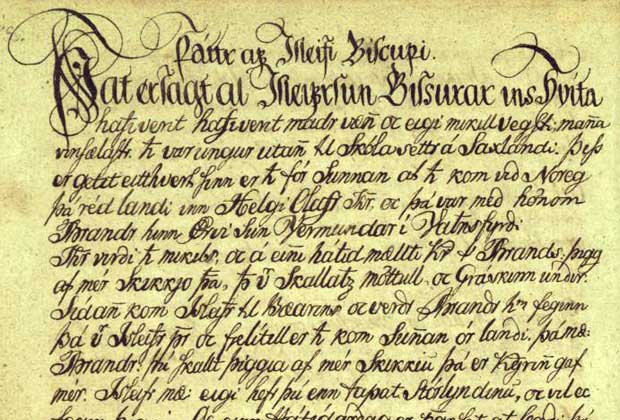 Þáttr az Ísleifi Biscupi.
Þat er sagt at Ísleifr sun Bissurar ins Hvíta
hafi vent hafi vent madr væñ oc eigi mikill vegsti, maña
vinsælastr. ħ var ungur utañ til Skóla settr á Saxlandi. Þess
er getet eitthvert sinn er ħ fór sunnan at ħ kom vid Noreg
þá réd landi inn Helgi Olafr Kr. oc þá var med hönom
Brandr hinn Örvi Sun Vermundar í Vatnsfyrdi
Kr virdi ħ mikils, oc á eini hátid mællti Kr t Brands: þigg
af mér Skikkjo þa, þ v Skallatz möttull, oc Gráskinn undir.
Sídañ kom Isleifr til Bæarins oc verdr Brandr hm feginn
þá v Isleifr pr oc felitell er ħ kom Suñan ór landi. þá mæ:
Brandr: þú skallt þiggia af mér Skikkiu þá er Kgriñ gaf
mér. Isleifr mæ: eigi hefr þú enn tapat Stórlyndinu, oc vil ec